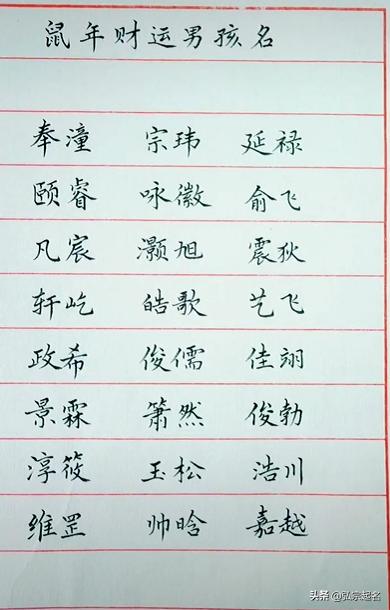 鼠年财运男孩名
奉潼 宗玮 延禄
颐睿 咏徽 俞飞
凡宸 灏旭 震狄
轩屹 皓歌 艺飞
政希 俊儒 佳翊
景霖 箫然 俊勃
淳筱 玉松 浩川
维罡 帅晗 嘉越
头条 @弘宗起名